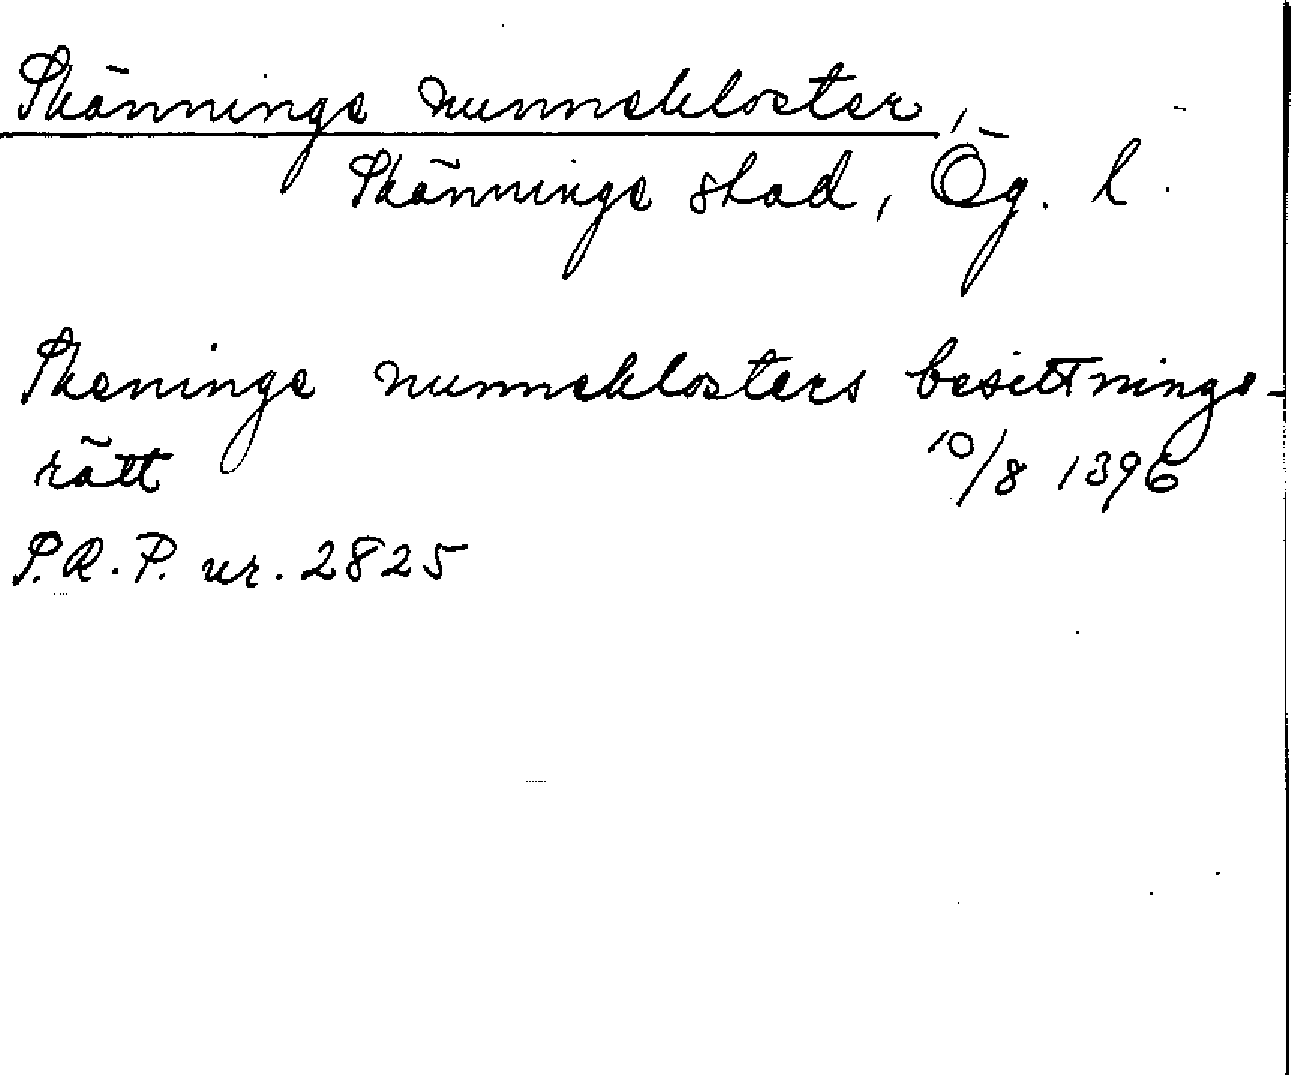 Skänninge nunnekloster,
Skänninge stad, Ög. l.
Skeninge nunneklosters besittnings-
rätt 10/8 1396
S.R.P. nr. 2825